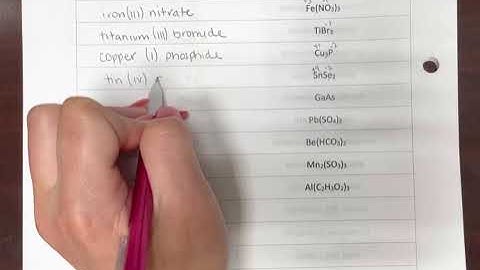 iron(III) nitrate Fe(NO₃)₃
titanium (III) bromide TiBr₃
copper (I) phosphide Cu₃P
tin (IV) SnSe₂
GaAs
Pb(SO₄)₂
Be(HCO₃)₂
Mn₂(SO₃)₃
Al(C₂H₃O₂)₃